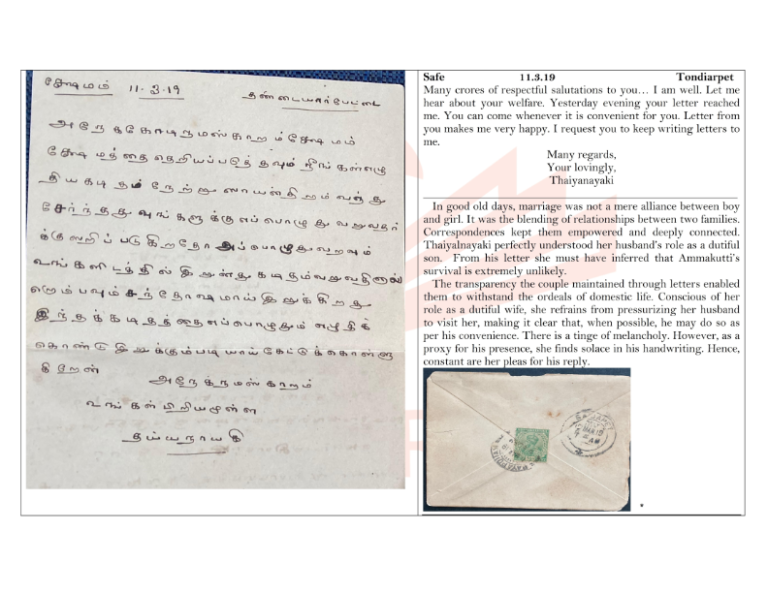 சேடிமம் 11-3-19
தண்டையார்பேட்டை
அநேககோடி நமஸ்காறம் சேடிமம்
சேடிமத்தை தெறியப்படுத்தவும் நீங்கள் எழு
திய கடிதம் நேற்று ஸாயன்திறம் வந்து
சேர்ந்தது வுங்களுக்கு எப்பொழுது வறுவதற்
க்கு ஸறிப்படுகிறதோ அப்பொழுது வறவும்
வுங்களிடத்தில் இறுன்து கடிதம் வறுவதினால்
றெம்பவும் சந்தோஷமாய் இறுக்கிறது
இந்தக்கடிதத்தை எப்பொழுதும் எழுதிக்
கொண்டு இறுக்கும்படியாய் கேட்டுக்கொள்ளு
கிறேன்
அநேக நமஸ்காறம்
வுங்கள் பிறியமுள்ள
தய்யநாயகி
Safe 11.3.19 Tondiarpet
Many crores of respectful salutations to you… I am well. Let me
hear about your welfare. Yesterday evening your letter reached
me. You can come whenever it is convenient for you. Letter from
you makes me very happy. I request you to keep writing letters to
me.
Many regards,
Your lovingly,
Thaiyanayaki
In good old days, marriage was not a mere alliance between boy
and girl. It was the blending of relationships between two families.
Correspondences kept them empowered and deeply connected.
Thaiyalnayaki perfectly understood her husband's role as a dutiful
son. From his letter she must have inferred that Ammakutti's
survival is extremely unlikely.
The transparency the couple maintained through letters enabled
them to withstand the ordeals of domestic life. Conscious of her
role as a dutiful wife, she refrains from pressurizing her husband
to visit her, making it clear that, when possible, he may do so as
per his convenience. There is a tinge of melancholy. However, as a
proxy for his presence, she finds solace in his handwriting. Hence,
constant are her pleas for his reply.